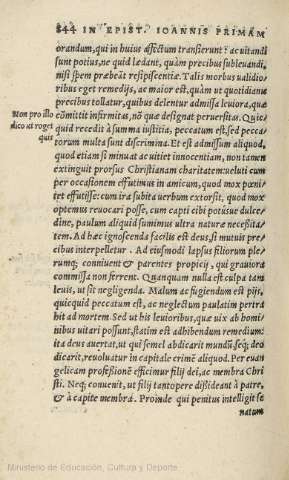 844 IN EPIST. IOANNIS PRIMAM
orandum, qui in huius affectum transierunt: ac uitandi
sunt potius, ne quid lædant, quàm precibus subleuandi,
nisi spem præbeāt resipiscentiæ. Talis morbus ualidio
ribus eget remedijs, ac maior est, quàm ut quotidianis
precibus tollatur, quibus delentur admissa leuiora, quæ
cōmittit infirmitas, nō quæ designat peruersitas. Quic
Non pro illo
dico ut roget
quis
quid recedit à summa iustitia, peccatum est, sed pecca-
torum multa sunt discrimina. Et est admissum aliquod,
quod etiam si minuat ac uitiet innocentiam, non tamen
extinguit prorsus Christianam charitatem: ueluti cum
per occasionem effutimus in amicum, quod mox pœni-
tet effutisse: cum ira subita uerbum extorsit, quod mox
optemus reuocari posse, cum capti cibi potusue dulce-
dine, paulum aliquid sumimus ultra naturæ necessita-
tem. Ad hæc ignoscenda facilis est deus, si mutuis pre
cibus interpelletur. Ad eiusmodi lapsus filiorum ple-
rumq; conniuent & parentes propicij, qui grauiora
commissa non ferrent. Quanquam nulla est culpa tam
leuis, ut sit negligenda. Malum ac fugiendum est pijs,
quicquid peccatum est, ac neglectum paulatim pertra
hit ad mortem. Sed ut his leuioribus, quæ uix ab homi
nibus uitari possunt, statim est adhibendum remedium:
ita deus auertat, ut qui semel abdicarit mundū, seq; deo
dicarit, reuoluatur in capitale crimē aliquod. Per euan
gelicam professionē efficimur filij dei, ac membra Chri
sti. Neq; conuenit, ut filij tantopere dissideant à patre,
& à capite membra. Proinde qui penitus intelligit se
natum
Ministerio de Educación, Cultura y Deporte